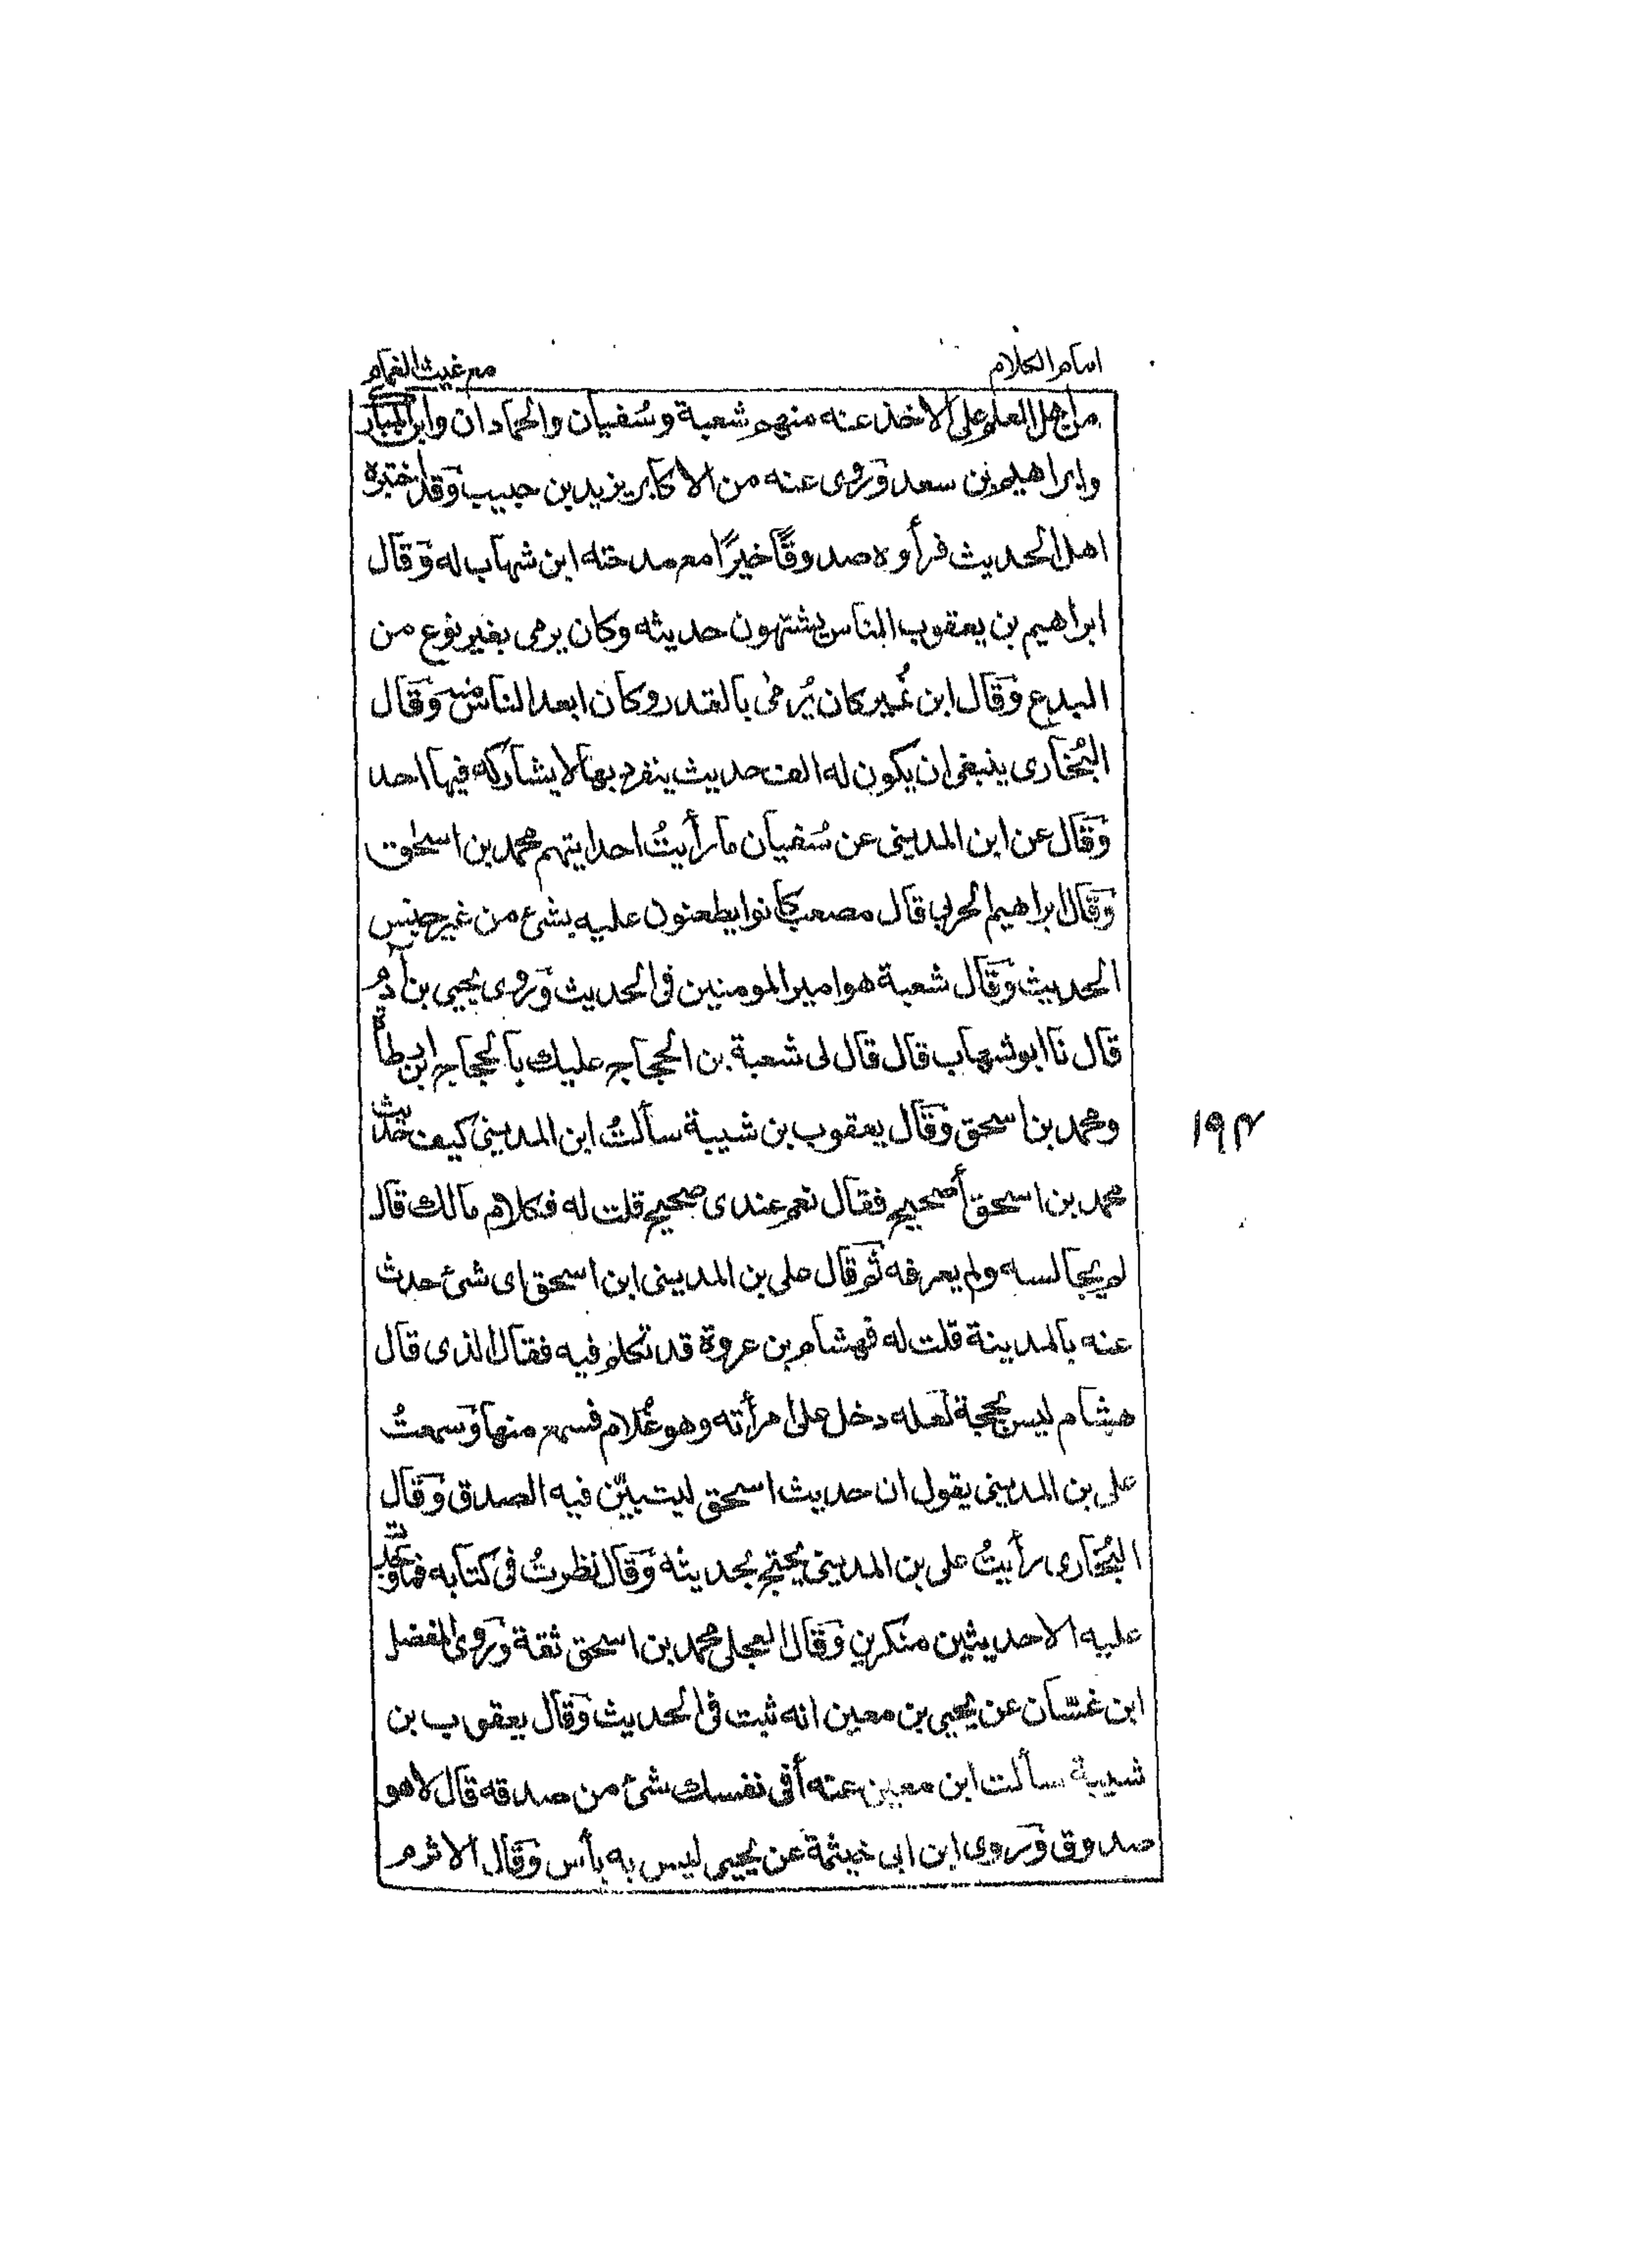 امام الكلام
مع غيث الغمام
من اهل العلم على الاخذ عنه منهم شعبة وسُفيان والحمادان وابن المبارك
وابراهيم بن سعد وروى عنه من الاكابر يزيد بن حبيب وقد اختبره
اهل الحديث فرأوه صدوقًا خيرًا مع مدحته ابن شهاب له وقال
ابراهيم بن يعقوب الناس يشتهون حديثه وكان يرمى بغير نوع من
البدع وقال ابن نُمير كان يُرمى بالقدر وكان ابعد الناس منه وقال
البُخارى ينبغى ان يكون له الف حديث ينفرد بها لا يشاركه فيها احد
وقال عن ابن المدينى عن سُفيان ما رأيتُ احدا يتهم محمد بن اسحٰق
وقال ابراهيم الحربى قال مصعب كانوا يطعنون عليه بشئ من غير جنس
الحديث وقال شعبة هو امير المومنين فى الحديث وروى يحيى بن آدم
قال نا ابو شهاب قال قال لى شعبة بن الحجاج عليك بالحجاج ابن ارطاة
ومحمد بن اسحق وقال يعقوب بن شيبة سألتُ ابن المدينى كيف حديث
١٩٤
محمد بن اسحق أصحيح فقال نعم عندى صحيح قلت له فكلام مالك قال
لم يجالسه ولم يعرفه ثم قال على بن المدينى ابن اسحق اى شئ حدث
عنه بالمدينة قلت له فهشام بن عروة قد تكلم فيه فقال الذى قال
هشام ليس بحجة لعله دخل على امرأته وهو غُلام فسمع منها وسمعتُ
على بن المدينى يقول ان حديث اسحق ليتبيّن فيه الصدق وقال
البُخارى رأيتُ على بن المدينى يحتج بحديثه وقال نظرتُ فى كتابه فما وجدت
عليه الا حديثين منكرين وقال العجلى محمد بن اسحق ثقة وروى المفضل
ابن غسّان عن يحيى بن معين انه ثبت فى الحديث وقال يعقوب بن
شيبة سألت ابن معين عنه أفى نفسك شئ من صدقه قال لا هو
صدوق وروى ابن ابى خيثمة عن يحيى ليس به بأس وقال الاثرم